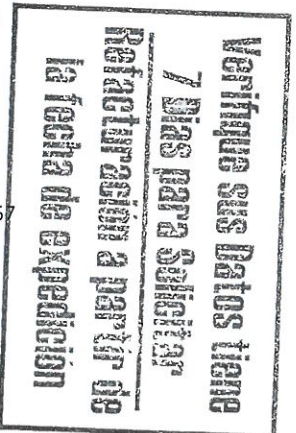 Verifique sus Datos tiene
7 Dias para Solicitar
Refacturación a partir de
la fecha de expedición
57